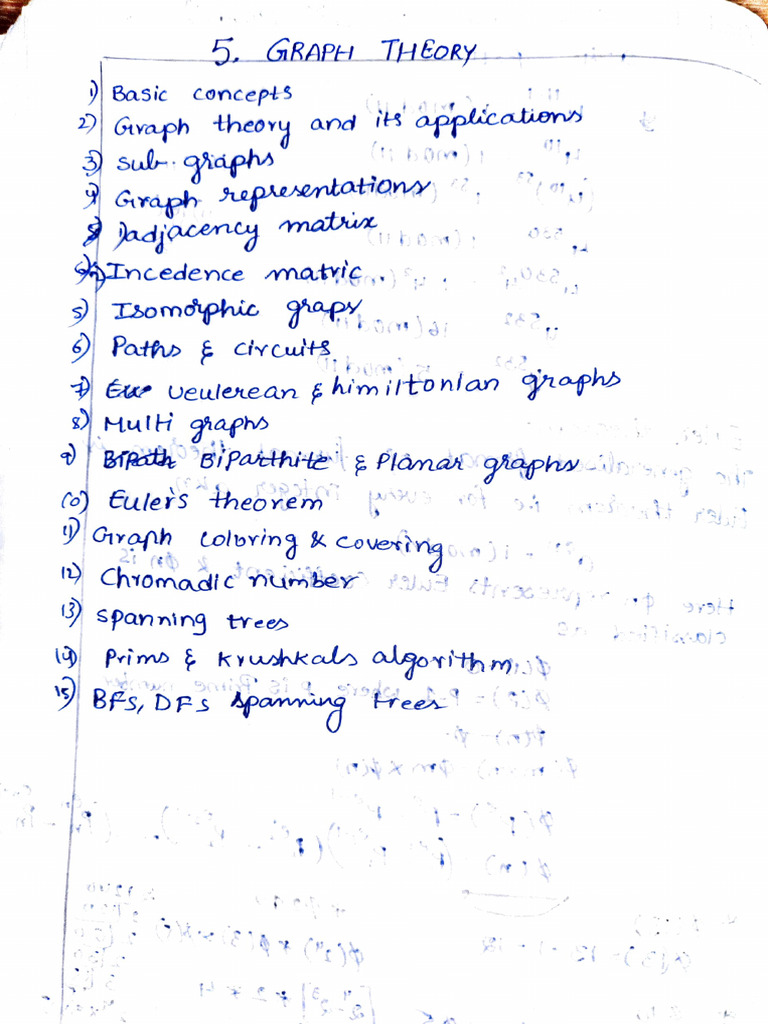 5. GRAPH THEORY
1) Basic concepts
2) Graph theory and its applications
3) sub graphs
4) Graph representations
1) adjacency matrix
2) Incedence matric.
5) Isomorphic graps
6) Paths & circuits
7) Ueulerean & himiltonian graphs
8) Multi graphs
9) Biparthite & Planar graphs
10) Euler's theorem
11) Graph coloring & covering
12) Chromadic number
13) spanning trees
14) Prims & krushkals algorithm
15) BFS, DFS spanning trees